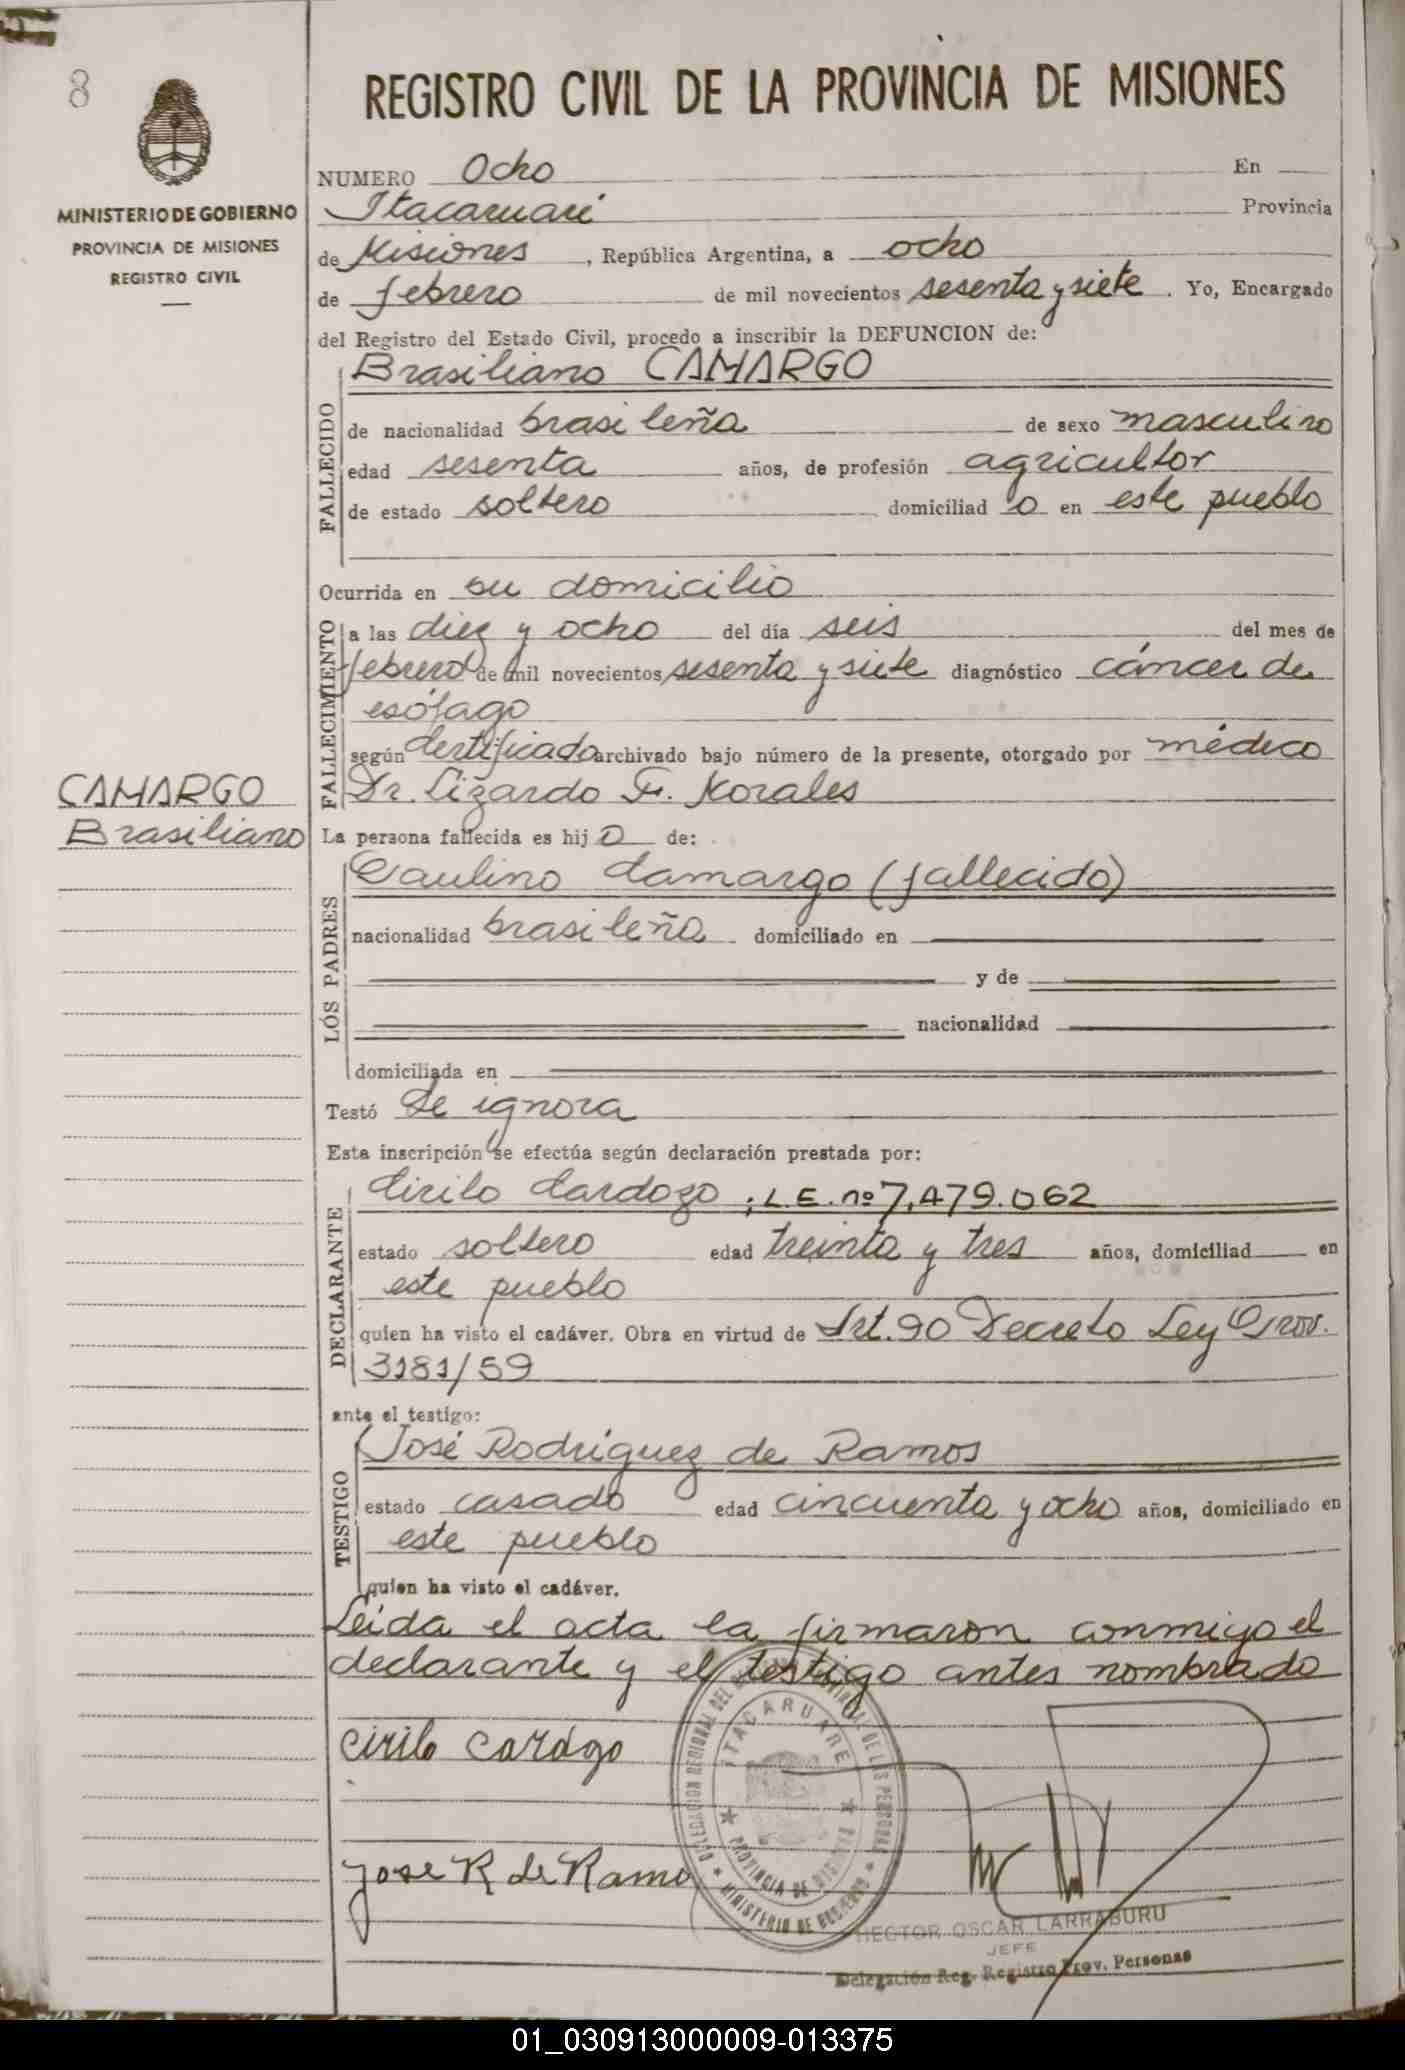 8
REGISTRO CIVIL DE LA PROVINCIA DE MISIONES
MINISTERIO DE GOBIERNO
PROVINCIA DE MISIONES
REGISTRO CIVIL
CAMARGO
Brasiliano
NUMERO Ocho En
Itacaruaré Provincia
de Misiones, República Argentina, a ocho
de febrero de mil novecientos sesenta y siete. Yo, Encargado
del Registro del Estado Civil, procedo a inscribir la DEFUNCION de:
FALLECIDO
Brasiliano CAMARGO
de nacionalidad brasileña de sexo masculino
edad sesenta años, de profesión agricultor
de estado soltero domiciliad o en este pueblo
Ocurrida en su domicilio
FALLECIMIENTO
a las diez y ocho del día seis del mes de
febrero de mil novecientos sesenta y siete diagnóstico cáncer de
esófago
según Certificado archivado bajo número de la presente, otorgado por médico
Dr. Lizardo F. Morales
La persona fallecida es hij o de:
LOS PADRES
Paulino Camargo (fallecido)
nacionalidad brasileña domiciliado en
y de
nacionalidad
domiciliada en
Testó Se ignora
Esta inscripción se efectúa según declaración prestada por:
DECLARANTE
Cirilo Cardozo ; L.E. nº 7.479.062
estado soltero edad treinta y tres años, domiciliad en
este pueblo
quien ha visto el cadáver. Obra en virtud de Art. 90 Decreto Ley Prov.
3181/59
ante el testigo:
TESTIGO
José Rodríguez de Ramos
estado casado edad cincuenta y ocho años, domiciliado en
este pueblo
quien ha visto el cadáver.
Leída el acta la firmaron conmigo el
declarante y el testigo antes nombrado
Cirilo Cardozo
Jose R de Ramo
ITACARUARE
PROVINCIA DE MISIONES
MINISTERIO DE GOBIERNO
HECTOR OSCAR LARRABURU
JEFE
Delegación Reg. Registro Prov. Personas
01_030913000009-013375